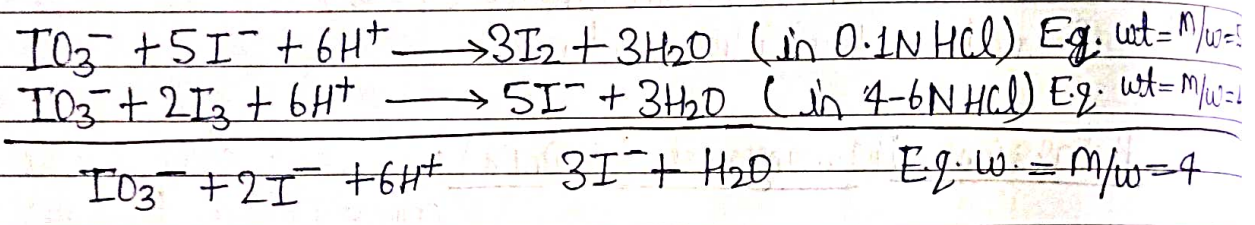 IO3⁻ + 5I⁻ + 6H⁺ ⟶ 3I2 + 3H2O (in 0.1N HCl) Eq. wt = M/w = 5
IO3⁻ + 2I3 + 6H⁺ ⟶ 5I⁻ + 3H2O (in 4-6N HCl) Eq. wt = M/w =
IO3⁻ + 2I⁻ + 6H⁺ 3I⁻ + H2O Eq. w. = M/w = 4